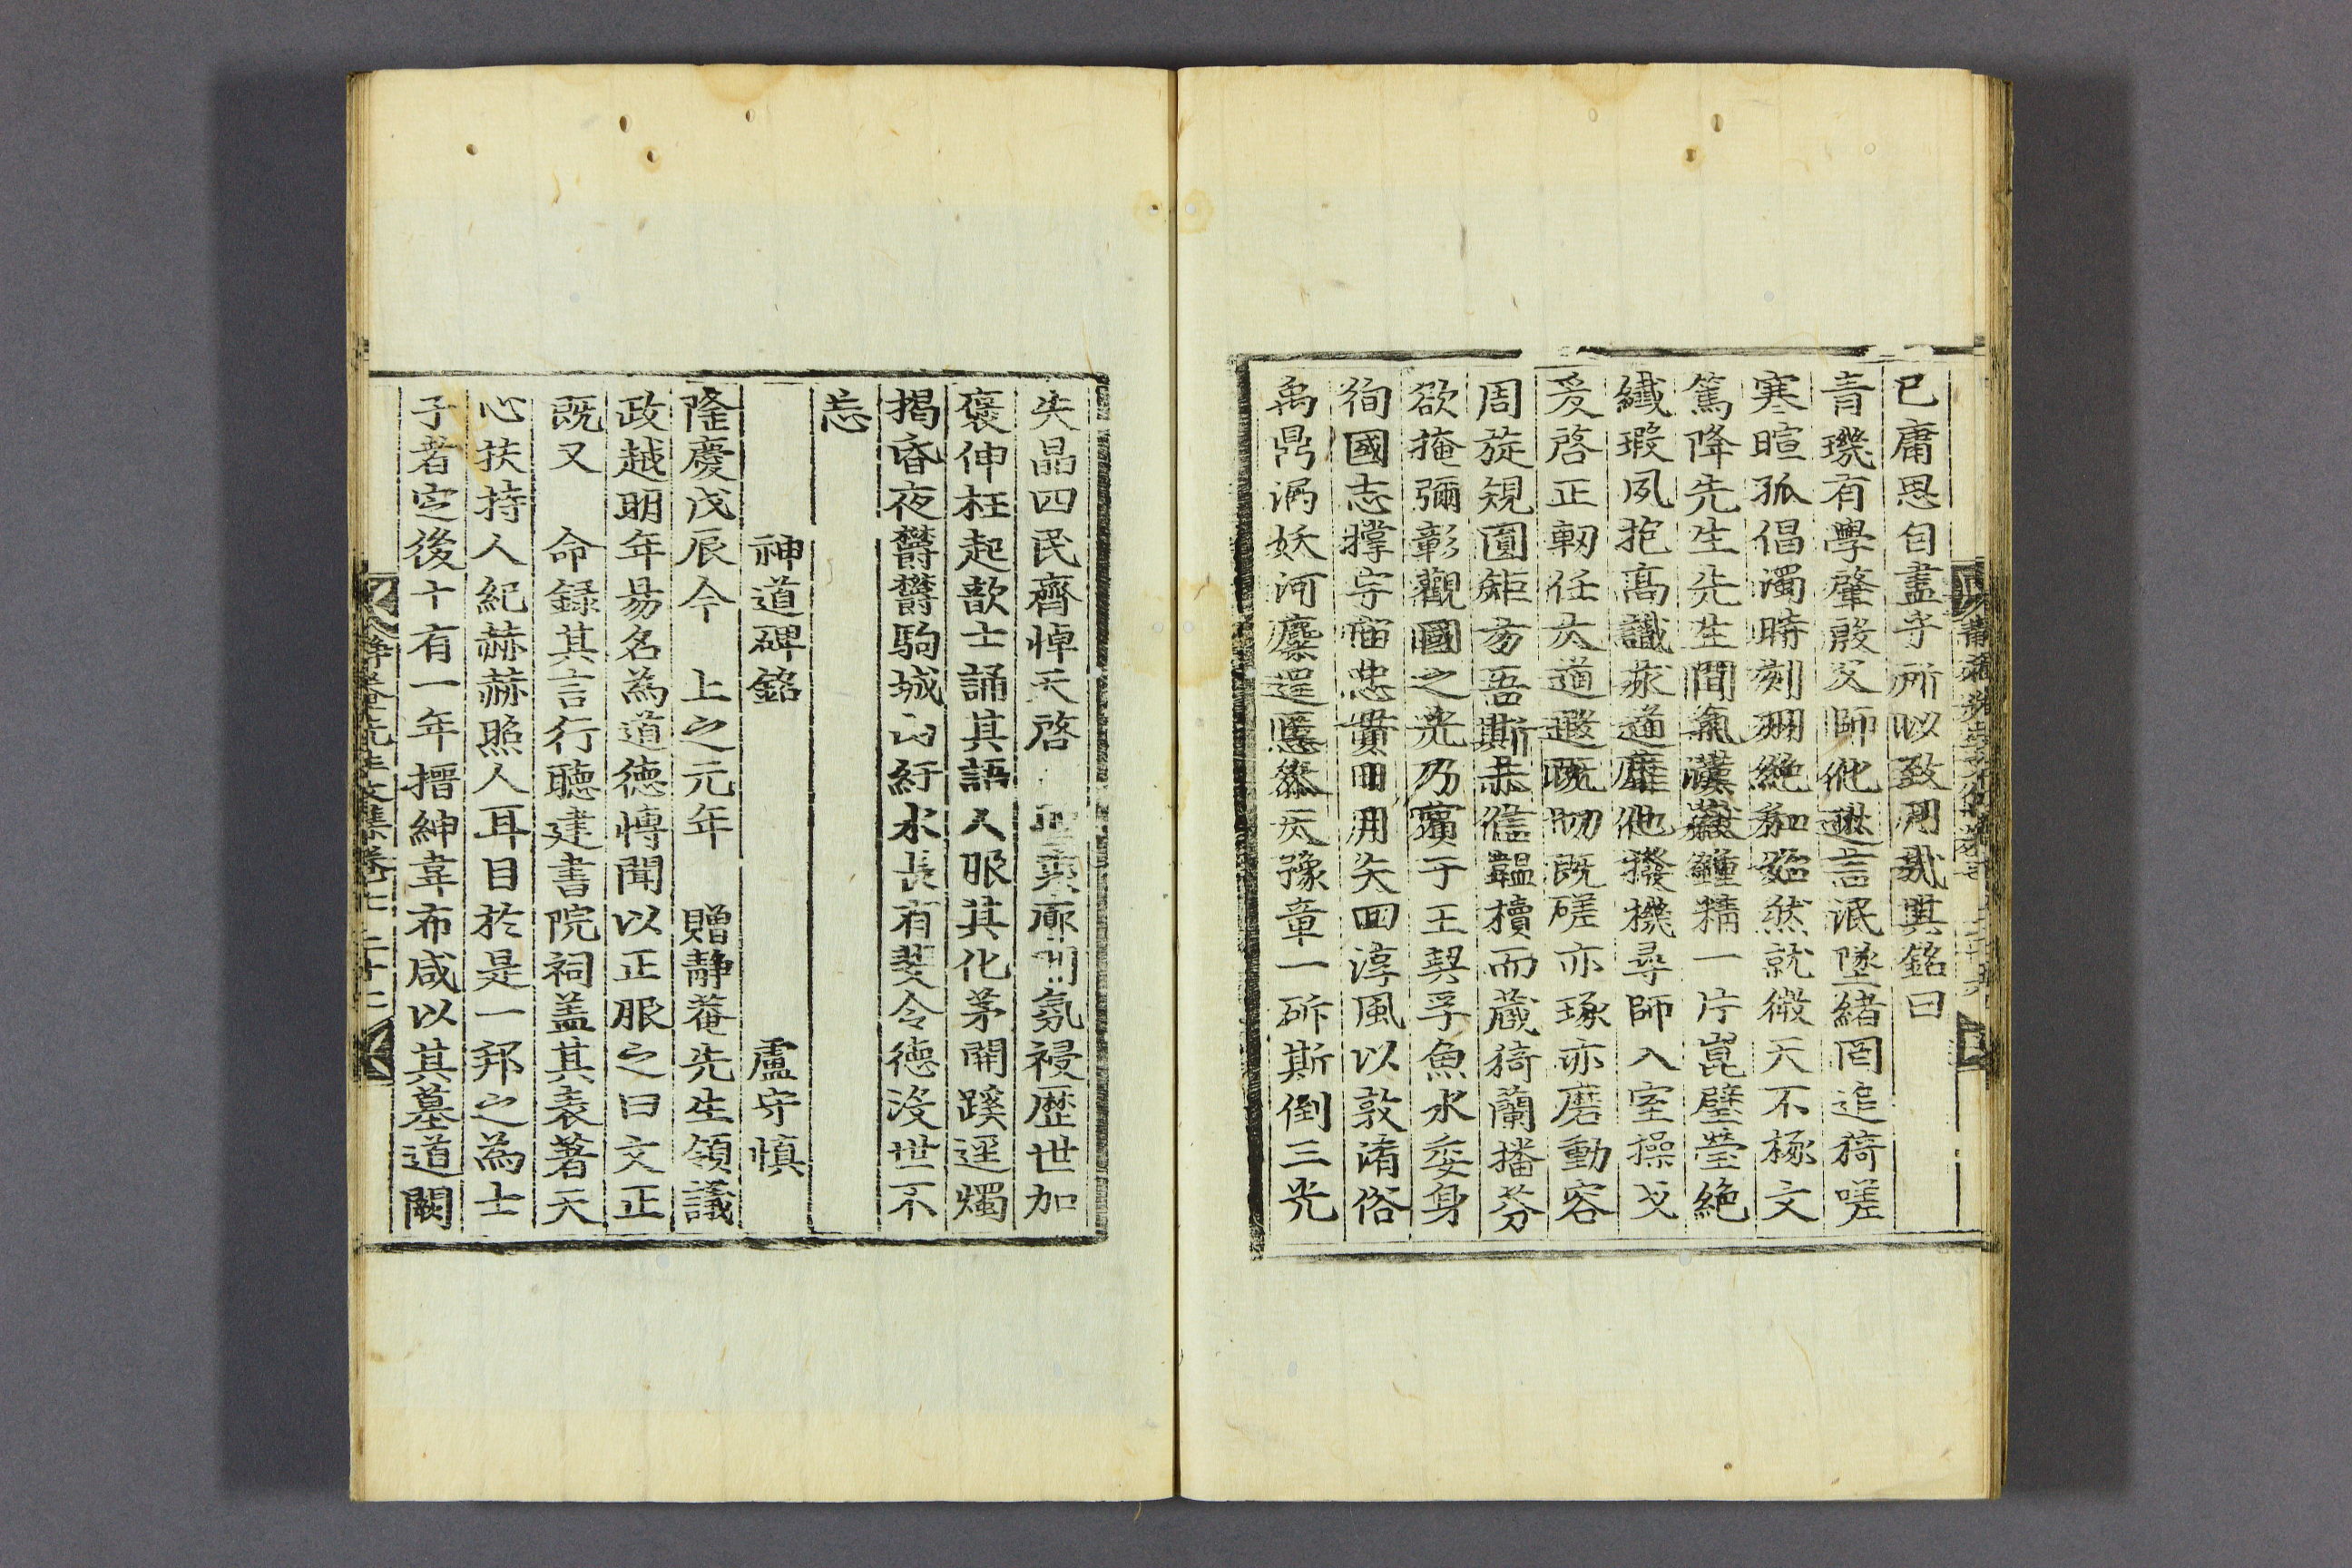 已庸思自盡乎所以致用哉其銘曰
青璣有學肇殷父師他遜言泯墜緒罔追猗嗟
寒暄孤倡濁時刻棚絶綱始然就微天不椓文
篤降先生先生間氣漢嶽鍾精一片崑璧瑩絶
纎瑕夙抱高識求通靡他撥機尋師入室操戈
爰啓正軔任大道遐既切既磋亦琢亦磨動容
周旋規圎矩方吾斯未信韞櫝而藏猗蘭播芬
欲掩彌彰觀國之光乃賓于王契孚魚水委身
徇國志撑宇宙忠貫日用矢回淳風以敦淆俗
禹鼎沥妖河麋逞慝叅天豫章一斫斯倒三光
失晶四民齊悼天啓 聖衷廓開氛祲歴世加
褒伸枉起歆士誦其語人服其化茅開蹊逕燭
揭昏夜欝欝駒城 紆水長有斐令德沒世不
忘
神道碑銘 盧守愼
隆慶戊辰今 上之元年 贈静菴先生領議
政越明年昜名為道徳博聞以正服之曰文正
既又 命録其言行聽建書院祠盖其表著天
心扶持人紀赫赫照人耳目於是一邦之為士
子者定後十有一年搢紳韋布咸以其墓道闕
静菴先生文集卷之 二十二